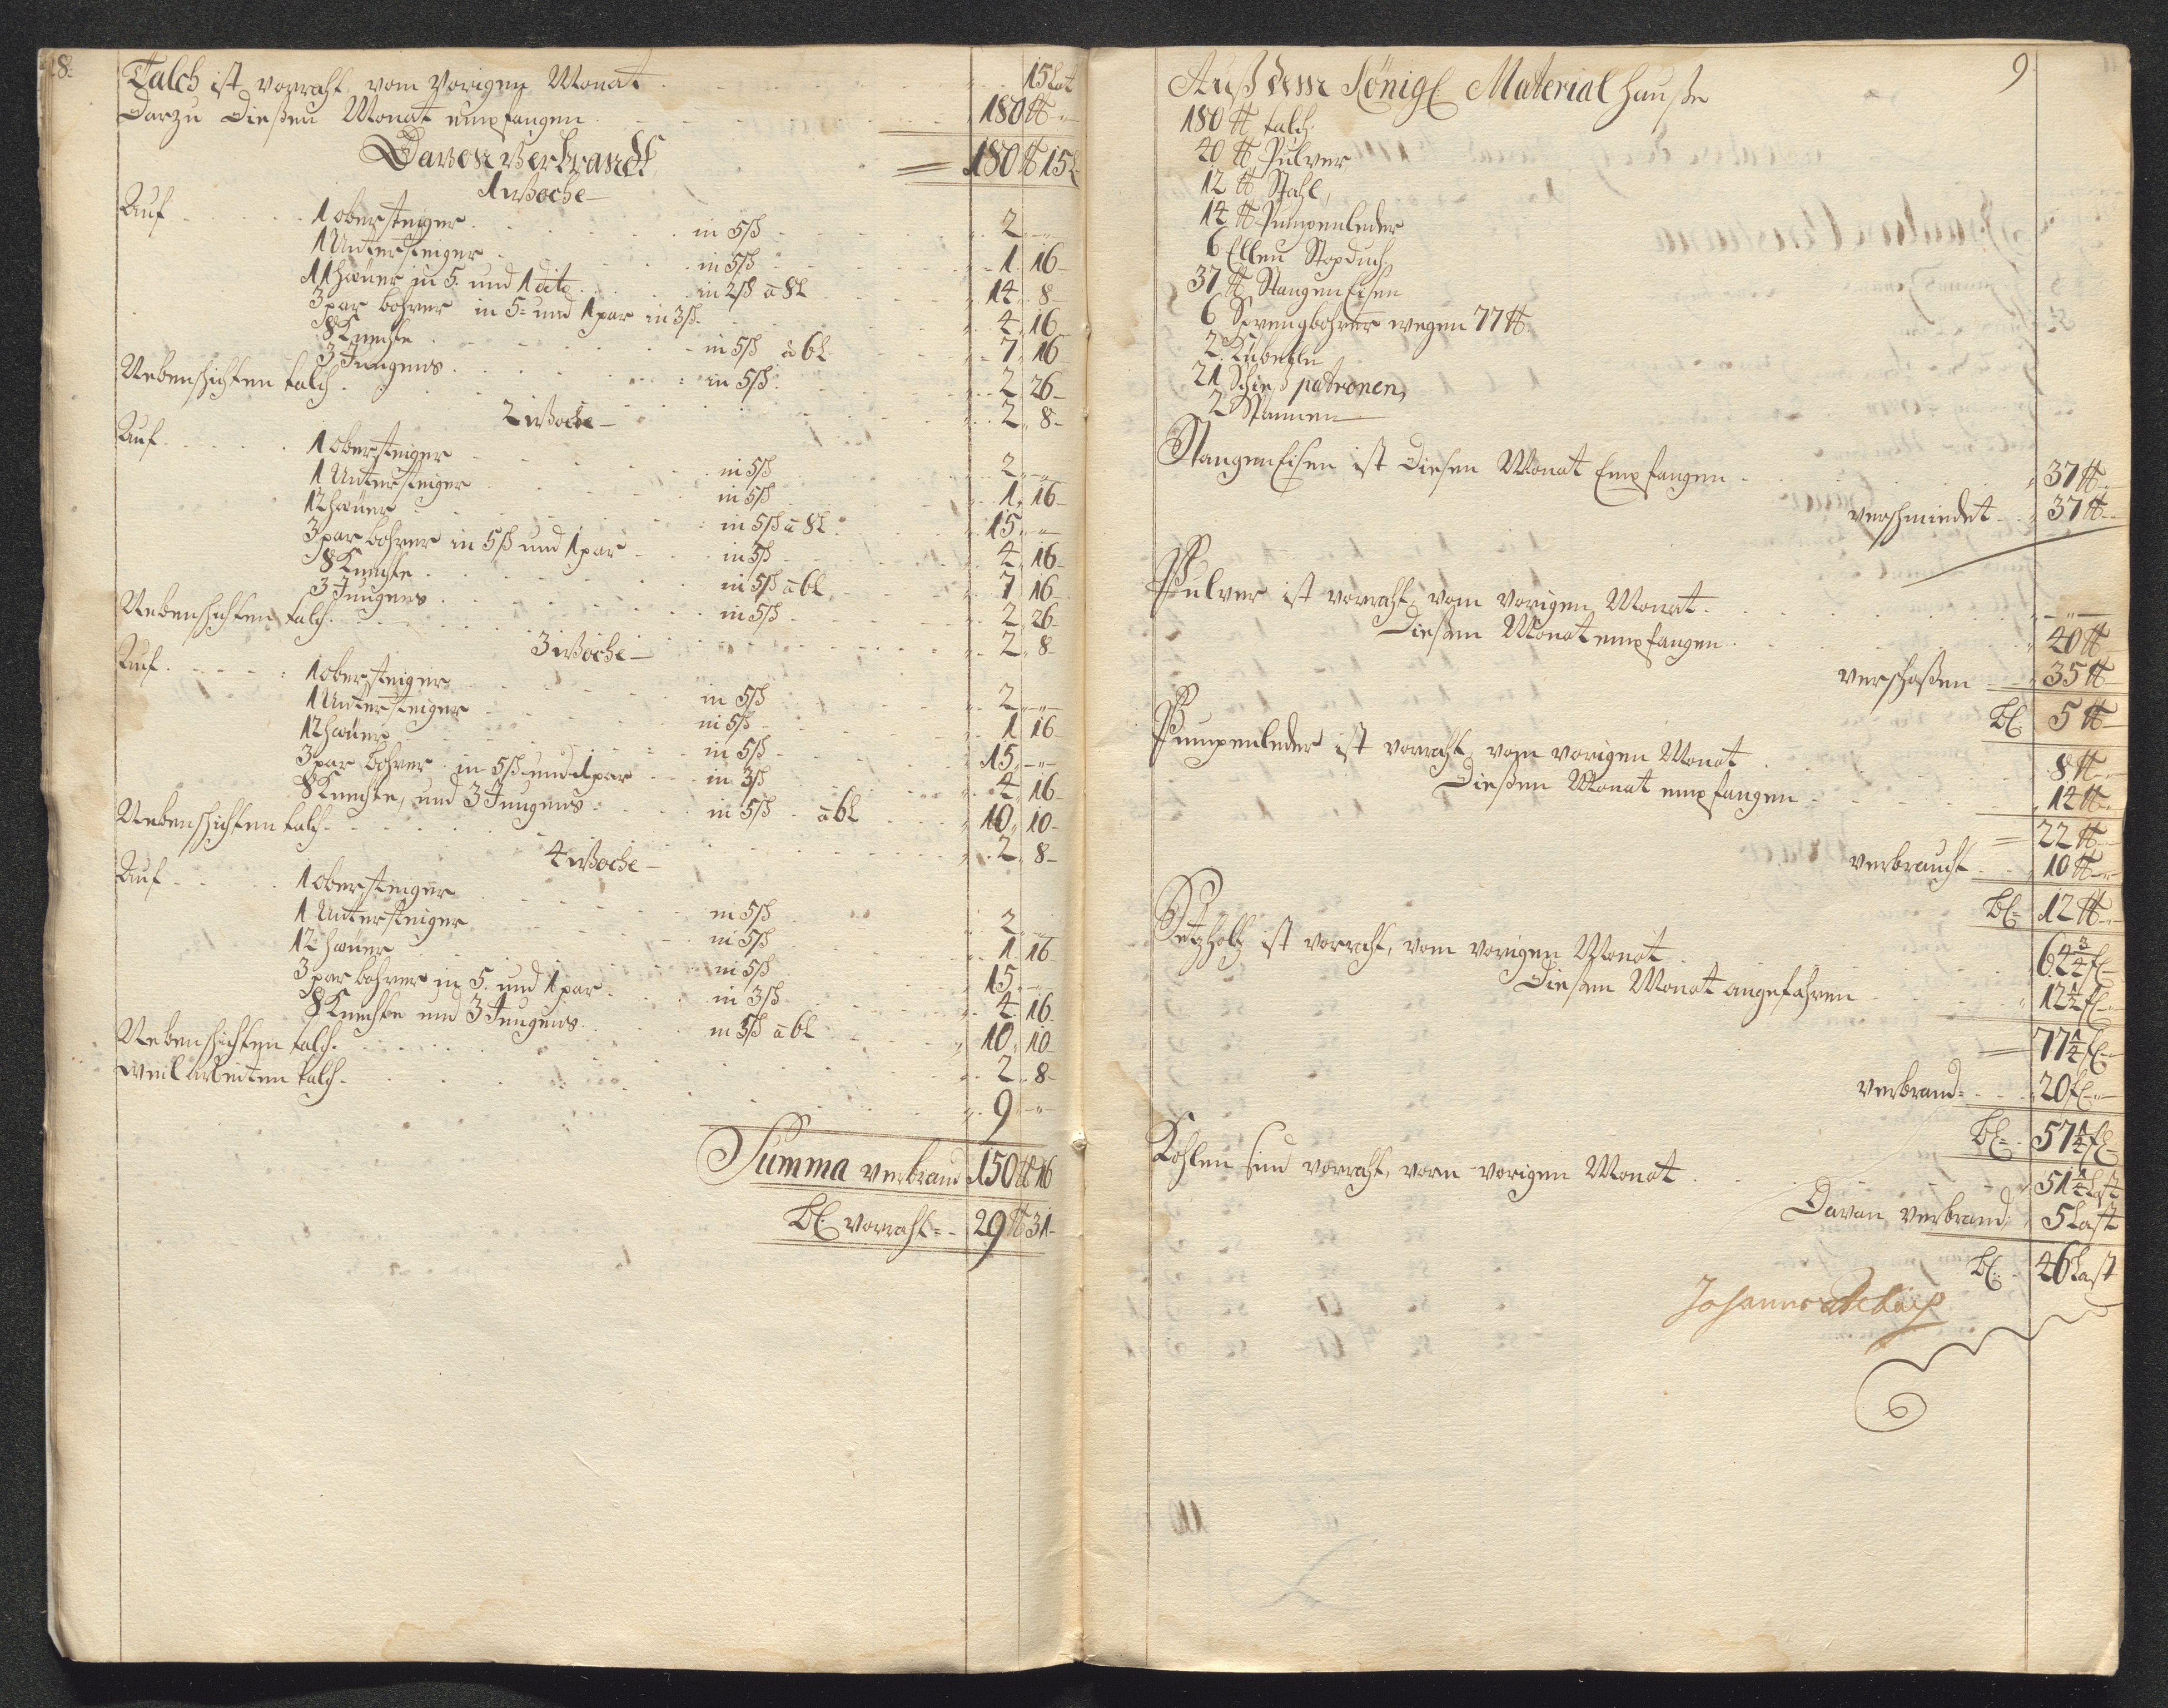 8.
Talch ist vorraht vom Vorigen Monat 15 Lot
Darzu Dießen Monat empfangen 180 ℔
= 180 ℔ 15 L
Davon verbrandt
1 Woche
Auf 1 obersteiger in 5 ß 2
1 Untersteiger in 5 ß 1 16
11 häuer in 5. und 1 dito in 2 ß a 8 L 14 8
3 par bohrer in 5 und 1 par in 3 ß 4 16
8 Knechte in 5 ß a 6 L 7 16
3 Jungens in 5 ß 2 26
Nebenschichten talch 2 8
2 Woche
Auf 1 obersteiger in 5 ß 2
1 Untersteiger in 5 ß 1 16
12 häuer in 5 ß a 8 L 15
3 par bohrer in 5 ß und 1 par in 3 ß 4 16
8 Knechte in 5 ß a 6 L 7 16
3 Jungens in 5 ß 2 26
Nebenschichten talch 2 8
3 Woche
Auf 1 obersteiger in 5 ß 2
1 Untersteiger in 5 ß 1 16
12 häuer in 5 ß 15
3 par bohrer in 5 ß und 1 par in 3 ß 4 16
8 Knechte, und 3 Jungens in 5 ß a 6 L 10 10
Nebenschichten talch 2 8
4 Woche
Auf 1 obersteiger in 5 ß 2
1 Untersteiger in 5 ß 1 16
12 häuer in 5 ß 15
3 par bohrer in 5. und 1 par in 3 ß 4 16
8 Knechte und 3 Jungens in 5 ß a 6 L 10 10
Nebenschichten talch 2 8
weil arbeiten talch 9
Summa verbrand 150 ℔ 16
Bl. vorraht 29 ℔ 31
9
Auß dem Königl. Material hauße
180 ℔ talch
40 ℔ Pulver
12 ℔ Stahl
14 ℔ Pumpenleder
6 Ellen Stopduch
37 ℔ Stangen Eisen
6 Sprengbohrer wegen 77 ℔
2 Kübeln
21 Schieß patronen
2
Stangen Eisen ist Diesen Monat Empfangen 37 ℔
verschmiedet 37 ℔
Pulver ist vorraht vom vorigen Monat
Diesen Monat empfangen 40 ℔
verschoßen 35 ℔
Bl. 5 ℔
Pumpenleder ist vorraht vom vorigen Monat 8 ℔
Dießen Monat empfangen 14 ℔
= 22 ℔
verbraucht 10 ℔
Bl. 12 ℔
Setzholtz ist vorraht, vom vorigen Monat 64 3/4 fl
Diesem Monat angefahren 12 1/2 fl
77 1/4 fl
verbrand 20 fl
Bl. 57 1/4 fl
Kohlen sind vorraht, vom vorigen Monat 51 1/4 Last
Davon verbrand 5 Last
Bl. 46 Last
Johannes